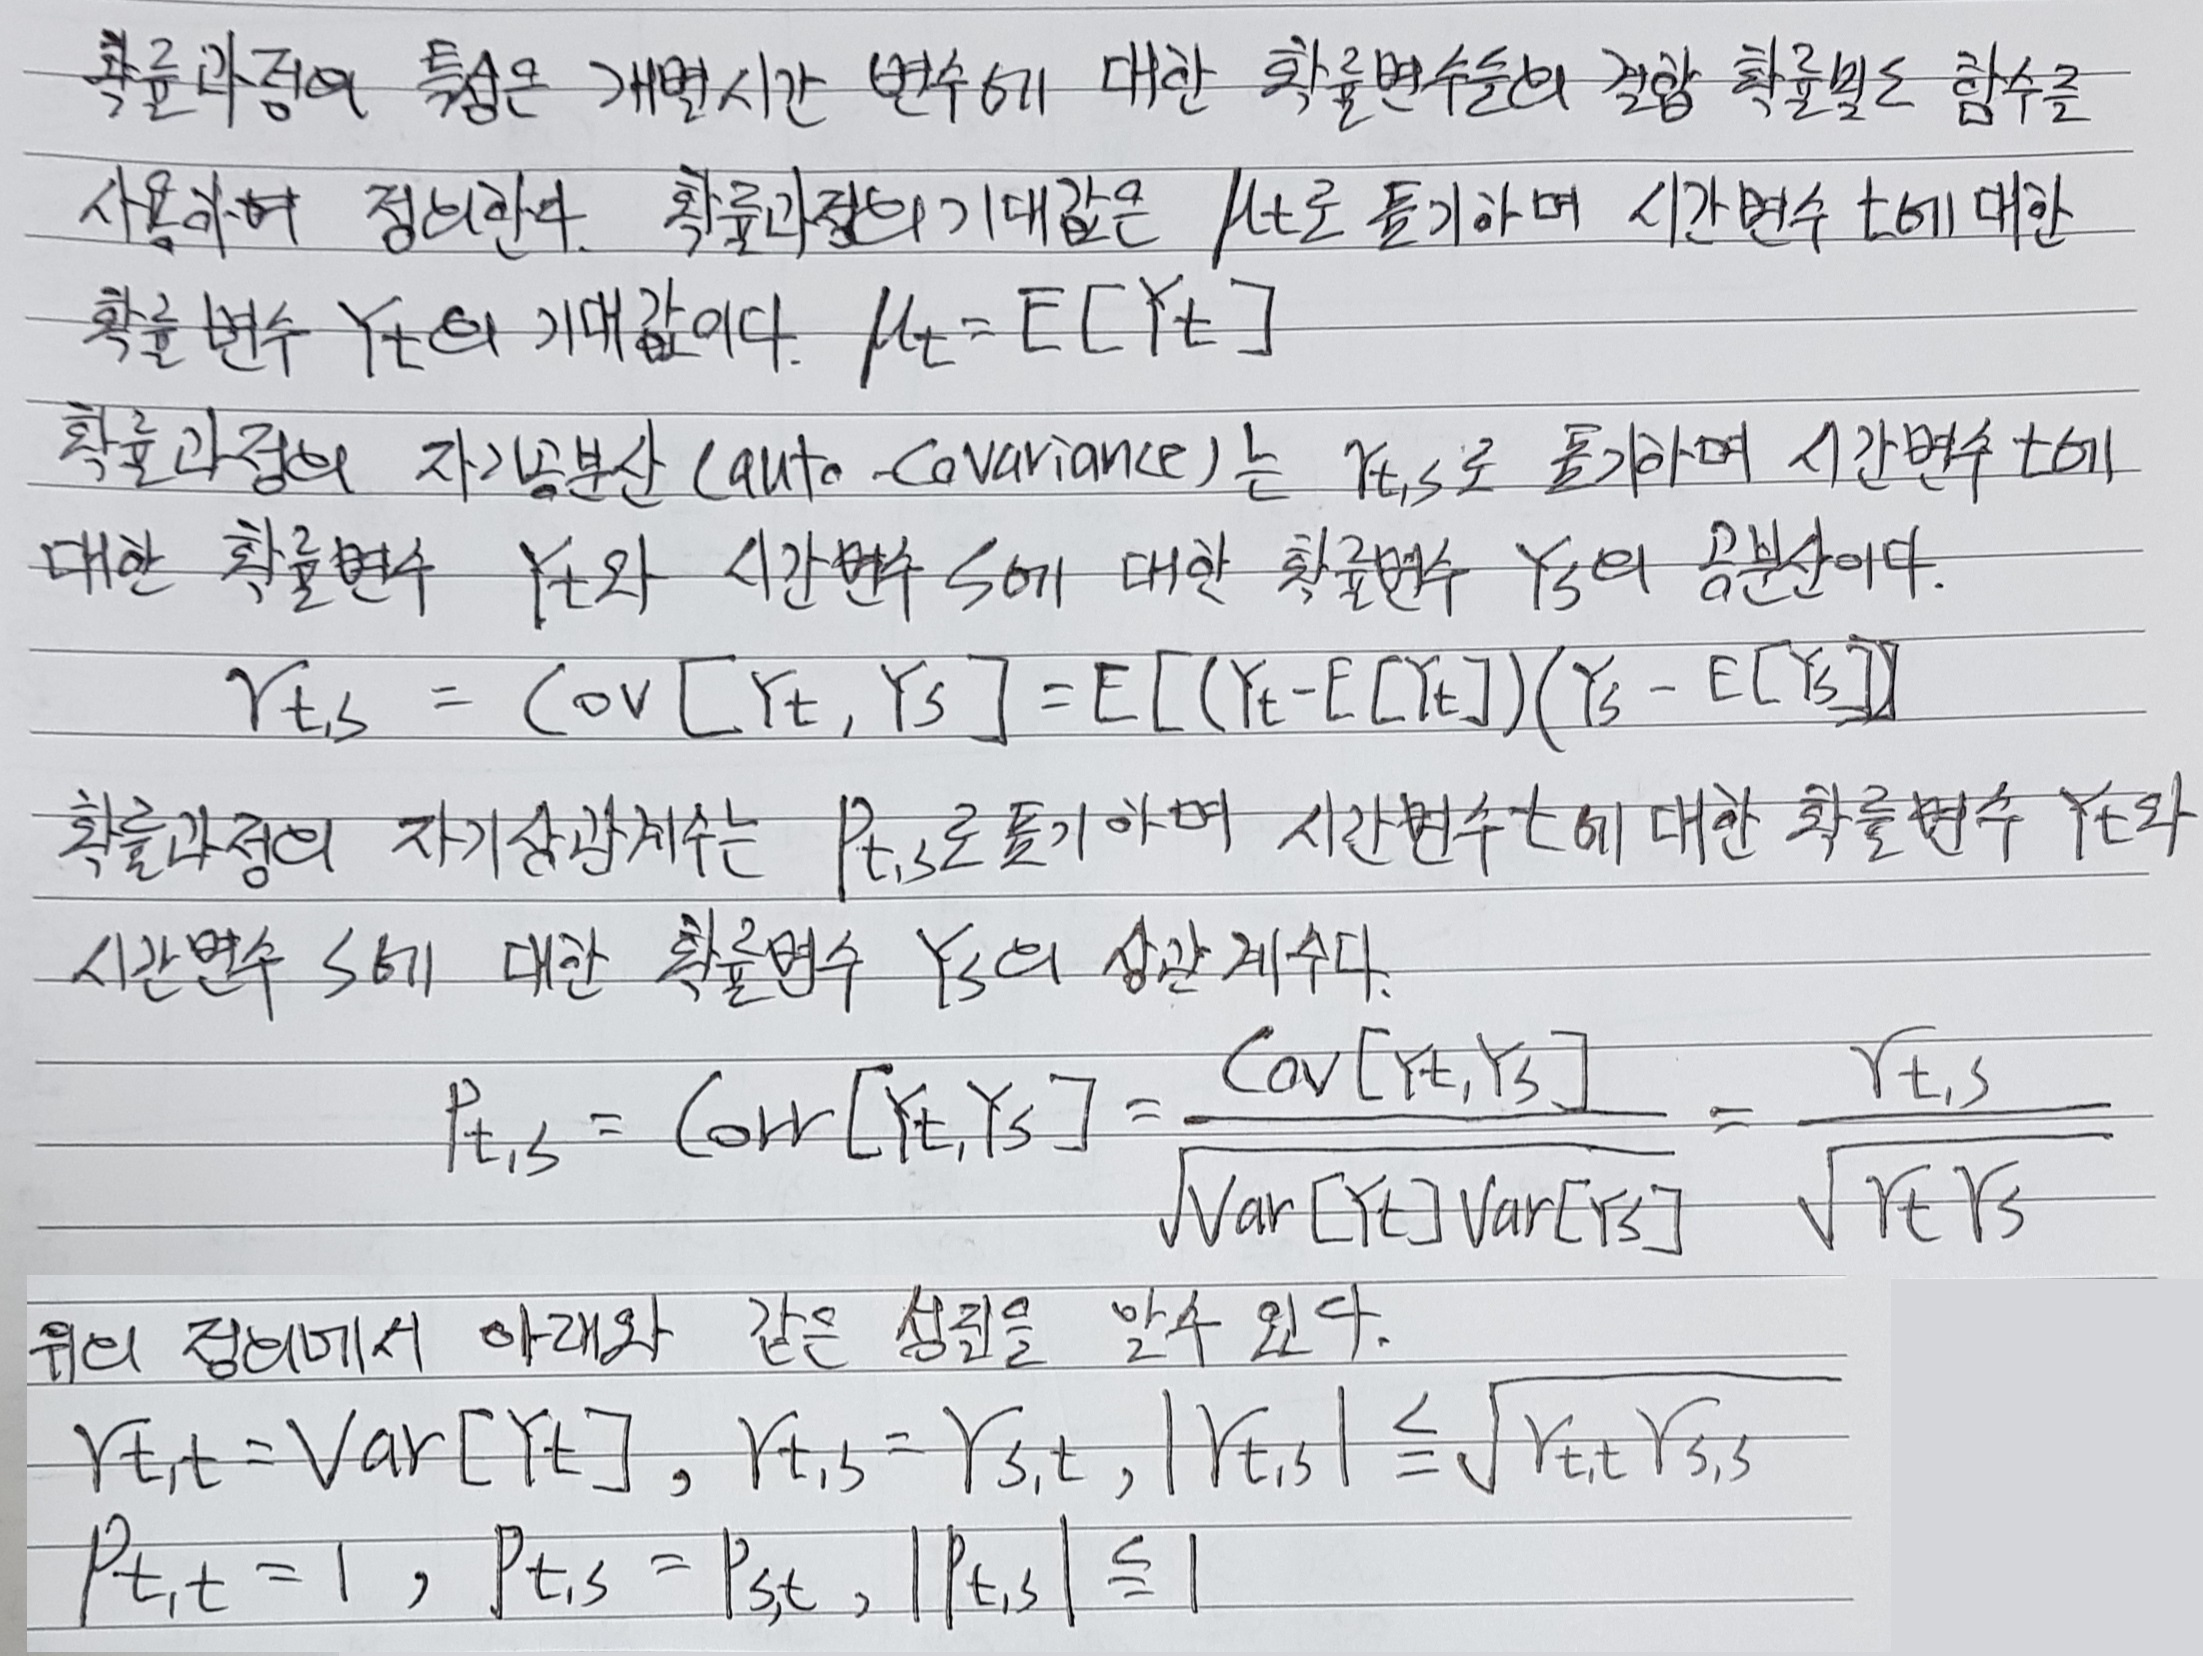 확률과정의 특성은 개별시간 변수에 대한 확률변수들의 결합 확률밀도 함수를
사용하여 정의한다. 확률과정의 기대값은 μt로 표기하며 시간변수 t에 대한
확률변수 Yt의 기대값이다. μt = E[Yt]
확률과정의 자기공분산(auto-Covariance)는 γt,s로 표기하며 시간변수 t에
대한 확률변수 Yt와 시간변수 s에 대한 확률변수 Ys의 공분산이다.
γt,s = Cov[Yt, Ys] = E[(Yt-E[Yt])(Ys - E[Ys])]
확률과정의 자기상관계수는 ρt,s로 표기하며 시간변수 t에 대한 확률변수 Yt와
시간변수 s에 대한 확률변수 Ys의 상관계수다.
ρt,s = Corr[Yt,Ys] = Cov[Yt,Ys] / √(Var[Yt] Var[Ys]) = γt,s / √(γt γs)
위의 정의에서 아래와 같은 성질을 알수 있다.
γt,t = Var[Yt], γt,s = γs,t, |γt,s| ≦ √(γt,t γs,s)
ρt,t = 1, ρt,s = ρs,t, |ρt,s| ≦ 1